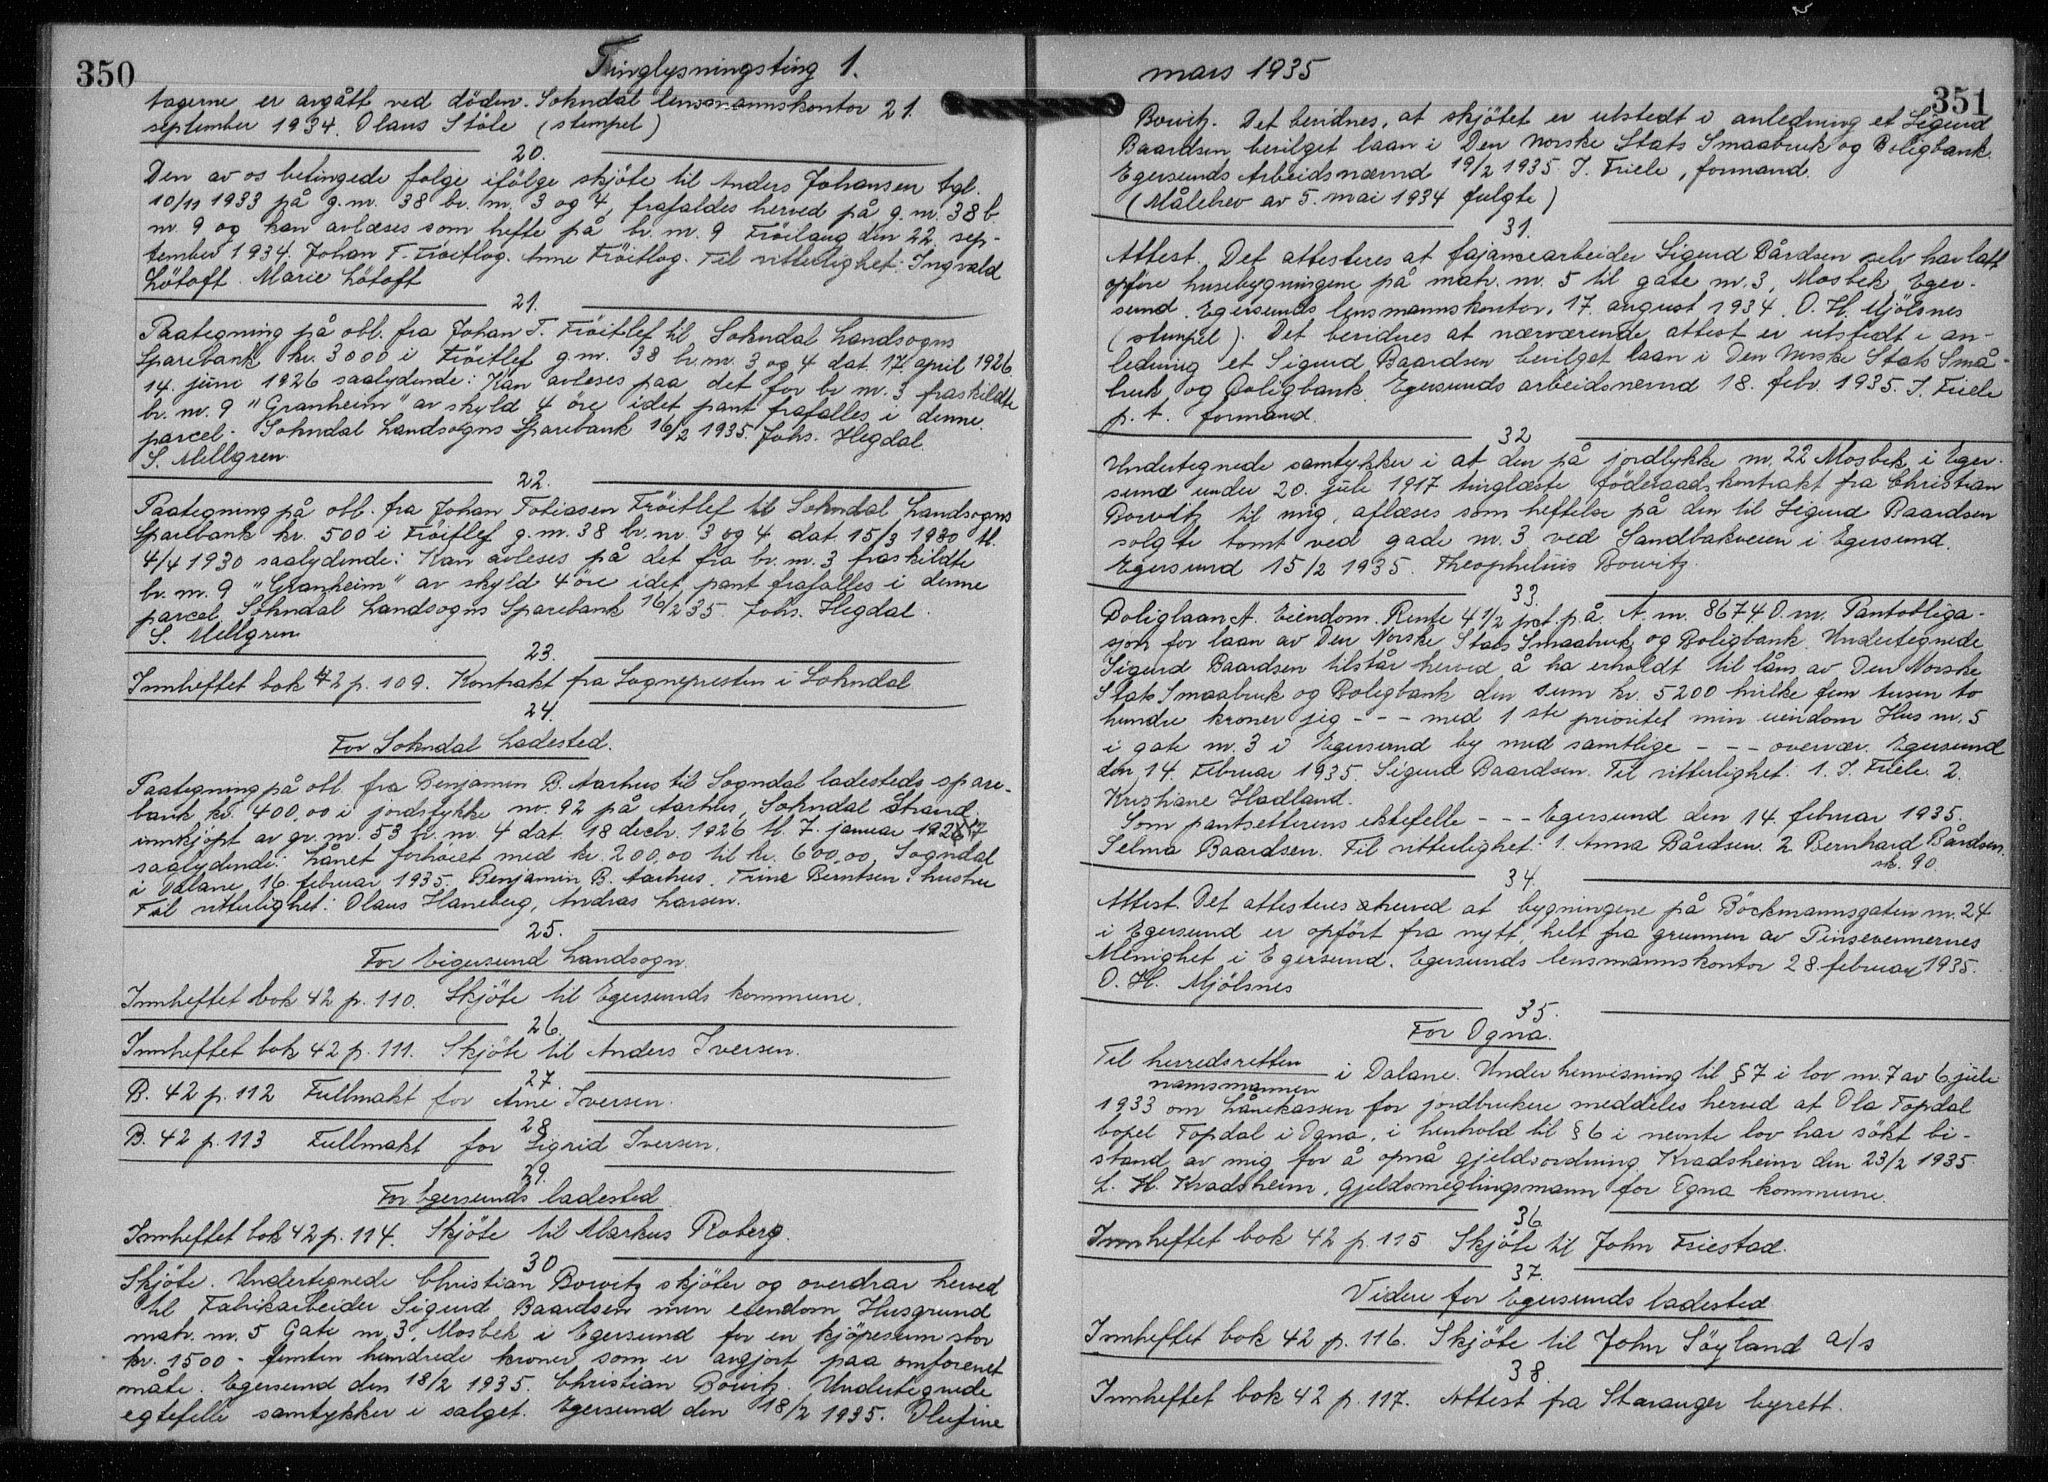 350
Tinglysningsting 1.
tagerne er avgått ved döden. Sokndal lensmannskontor 21.
september 1934. Olaus Stöle (stempel)
20.
Den av os betingede folge ifölge skjöte til Anders Johansen tgl.
10/11 1933 på g.nr. 38 br. nr. 3 og 4, frafaldes herved på g.nr. 38 b
nr. 9 og kan avlæses som hefte på br. nr. 9 Fröilaug den 22. sep-
tember 1934. Johan T. Fröitlog. Anne Fröitlog. Til vitterlighet: Ingvald
Lötoft. Marie Lötoft
21.
Paategning på obl. fra Johan T. Fröitlef til Sokndal Landsogns
Sparebank, kr. 3000 i Fröitlef g.nr. 38 br.nr. 3 og 4 dat. 17. april 1926.
14. juni 1926 saalydende: Kan avleses paa det for br nr. 3 fraskildte
br. nr. 9 "Granheim" av skyld 4 öre idet pant frafalles i denne
parcel. Sokndal Landsogns Sparebank 16/2 1935. Johs. Hegdal.
S. Mellgren.
22.
Paategning på obl. fra Johan Tobiasen Fröitlef til Sokndal Landsogns
Sparebank kr. 500 i Fröitlef g.nr. 38 br. nr. 3 og 4 dat. 15/3 1930 tl.
4/4 1930 saalydende: Kan avleses på det fra br. nr. 3 fraskildte
br. nr. 9 "Granheim" av skyld 4 öre idet pant frafalles i denne
parcel. Sokndal Landsogns Sparebank 16/2 35. Johs. Hegdal.
S. Mellgren
23.
Innheftet bok 42 p. 109. Kontrakt fra Sognepresten i Sokndal.
24.
For Sokndal Ladested.
Paategning på obl. fra Benjamin B. Aarhus til Sogndal ladesteds spare-
bank, kr. 400,00 i jordstykke nr. 92 på Aarhus, Sokndal Strand
innkjöpt av gr. nr. 53 br. nr. 4 dat. 18 decbr. 1926 tl. 7. januar 1927
saalydende: Lånet forhöiet med kr. 200,00 til kr. 600,00. Sogndal
i Dalane, 16. februar 1935. Benjamin B. Aarhus. Trine Berntsen: hustru
Til vitterlighet: Olaus Haneberg, Andras Larsen.
25.
For Eigersund Landsogn.
Innheftet bok 42 p. 110. Skjöte til Egersunds kommune.
26.
Innheftet bok 42 p. 111. Skjöte til Anders Iversen.
27.
B. 42 p. 112 Fullmakt for Arne Iversen.
28.
B. 42 p. 113 Fullmakt for Sigrid Iversen.
29.
For Egersunds ladested
Innheftet bok 42 p. 114. Skjöte til Markus Roberg.
30
Skjöte. Undertegnede Christian Bowitz skjöter og overdrar herved
til Fabrikarbeider Sigurd Baardsen min eiendom Husgrund
matr. nr. 5 Gate nr. 3, Mosbek i Egersund for en kjöpesum stor
kr. 1500 - femten hundrede kroner som er avgjort paa omforenet
måte. Egersund den 18/2 1935. Christian Bowitz. Undertegnede
egtefelle samtykker i salget. Egersund den 18/2 1935. Olufine
mars 1935
351
Bowitz. Det bevidnes, at skjötet er utstedt i anledning et Sigurd
Baardsen bevilget laan i Den Norske Stats Smaabruk og Boligbank.
Egersunds Arbeidsnævnd 19/2 1935. J. Friele, formand.
(Målebrev av 5. mai 1934 fulgte)
31.
Attest. Det attesteres at fajansearbeider Sigurd Bårdsen selv har latt
opföre husebygningene på matr. nr. 5 til gate nr. 3, Mosbek, Eger-
sund. Egersunds lensmannskontor, 17. august 1934. O. H. Mjölsnes
(stempel). Det bevidnes at nærværende attest er utstedt i an-
ledning et Sigurd Baardsen bevilget laan i Den Norske Stats Små-
bruk og Boligbank. Egersunds arbeidsnevnd 18. febr. 1935. J. Friele
p. t. formand.
32
Undertegnede samtykker i at den på jordlykke nr. 22 Mosbek i Eger-
sund under 20. juli 1917 tinglæste föderaadskontrakt fra Christian
Bowitz til mig, aflæses som heftelse på den til Sigurd Baardsen
solgte tomt ved gade nr. 3 ved Sandbakveien i Egersund.
Egersund 15/2 1935. Theophelius Bowitz.
33.
Boliglaan A. Eiendom. Rente 4 1/2 pct. p.å. A. nr. 8674. O. nr. Pantobliga-
sjon for laan av Den Norske Stats Smaabruk og Boligbank. Undertegnede
Sigurd Baardsen tilstår herved å ha erholdt til låns av Den Norske
Stats Smaabruk og Boligbank den sum kr. 5200 hvilke fem tusen to
hundre kroner jeg - - - med 1ste prioritet min eiendom Hus nr. 5
i gate nr. 3 i Egersund by med samtlige - - - overvær. Egersund
den 14. Februar 1935. Sigurd Baardsen. Til vitterlighet: 1. J. Friele. 2.
Kristiane Hadland.
Som pantsetterens ektefelle - - - Egersund den 14. februar 1935.
Selma Baardsen. Til vitterlighet: 1. Anna Bårdsen. 2 Bernhard Bårdsen.
sk. 90.
34.
Attest. Det attesteres herved at bygningene på Böckmannsgaten nr. 24
i Egersund er opfört fra nytt, helt fra grunnen av Pinsevennernes
Menighet i Egersund. Egersunds lensmannskontor 28. februar 1935.
O. H. Mjölsnes
35.
For Ogna.
Til herredsretten
namsmannen i Dalane. Under henvisning til § 7 i lov nr. 7 av 6 juli
1933 om Lånekassen for jordbrukere meddeles herved at Ola Topdal
bopel Topdal i Ogna, i henhold til § 6 i nevnte lov har sökt bi-
stand av mig for å opnå gjeldsordning. Kvadsheim den 23/2 1935.
L. H. Kvadsheim, Gjeldsmeglingsmann for Ogna kommune.
36.
Innheftet bok 42 p. 115 Skjöte til John Friestad.
37.
Videre for Egersunds ladested
Innheftet bok 42 p. 116. Skjöte til John Söyland a/s
38.
Innheftet bok 42 p. 117. Attest fra Stavanger byrett.